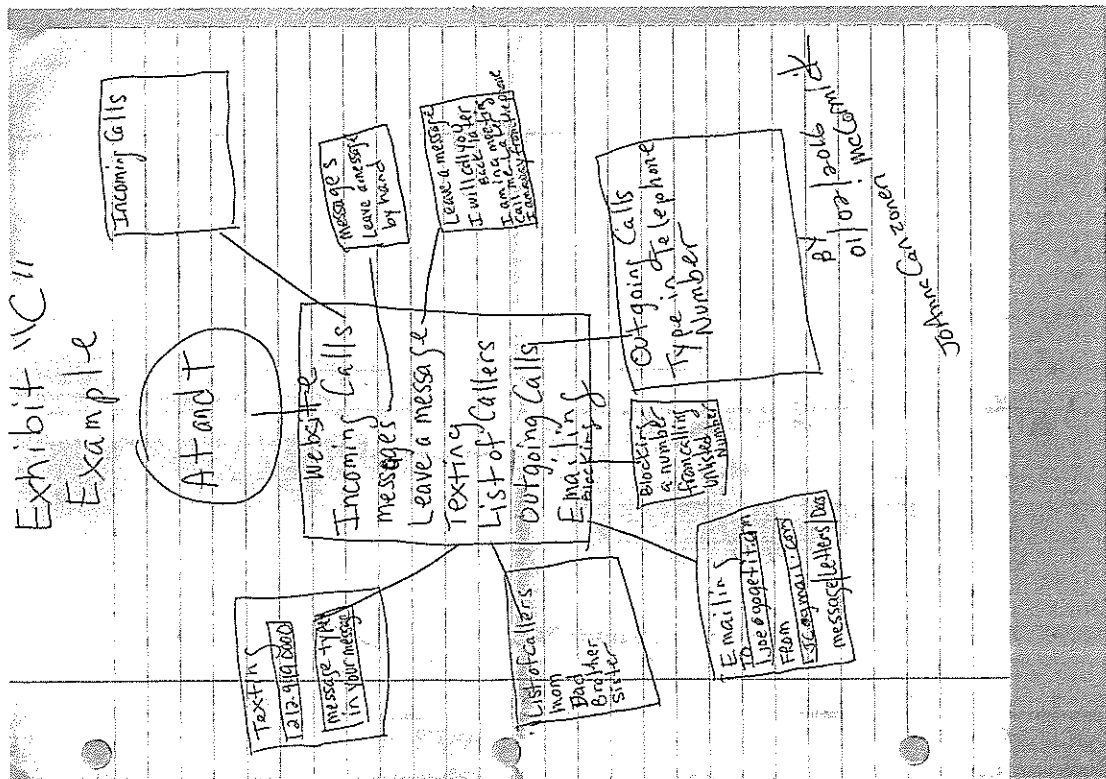 Exhibit "C"
Example
At and t
Website
Incoming Calls
messages
Leave a message
Texting
List of Callers
Outgoing Calls
Emailing
Blocking
Incoming Calls
messages
Leave a message
by hand
Leave a message
I will call you later
Back
I am in a meeting
call me Later
I am away from the phone
Outgoing Calls
Type in Telephone
Number
Blocking
a number
from calling
Number
Emailing
TO
From
message letters Doc
List of Callers
mom
Dad
Brother
Sister
Texting
message type
in your message
BY
01/02/2016
JoAnne Canzoneri